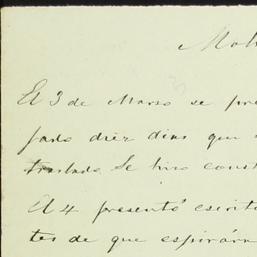 El 3 de Marzo se pre
fado diez dias que
traslado. Se hizo const
A 4 presentó escrito
tes de que espirárn